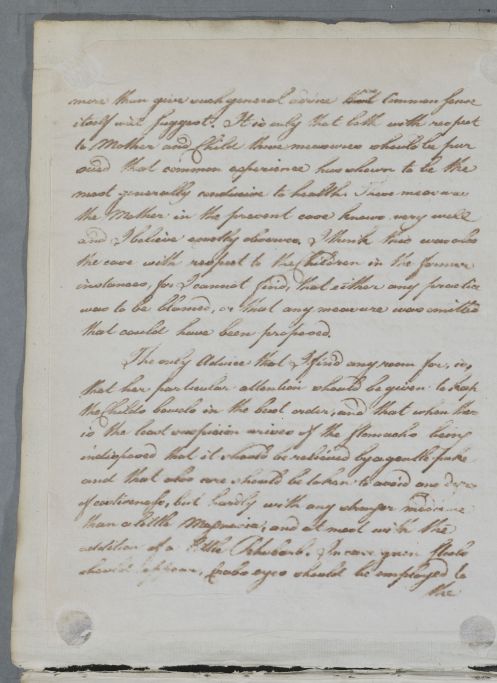 more than give such general advice that Common sense
itself will suggest. It is only that both with respect
to Mother and Child those measures should be pur
sued that common experience has shown to be the
most generally conducive to health. These measures
the Mother in the present case knows very well
and I believe exactly observes. I think this was also
the case with respect to the Children in the former
instances, for I cannot find, that either any practice
was to be blamed, or that any measure was omitted
that could have been proposed.
The only Advice that I find any room for, is,
that her particular attention should be given to keep
the Childs bowels in the best order, and that when there
is the least suspicion arises of the stomachs being
indisposed that it should be relieved by a gentle puke
and that also care should be taken to avoid any degree
of costiveness, but hardly with any stronger medicine
than a little Magnesia, and at most with the
addition of a little Rhubarb. In case green stools
should appear, Crabs eyes should be employed to
the